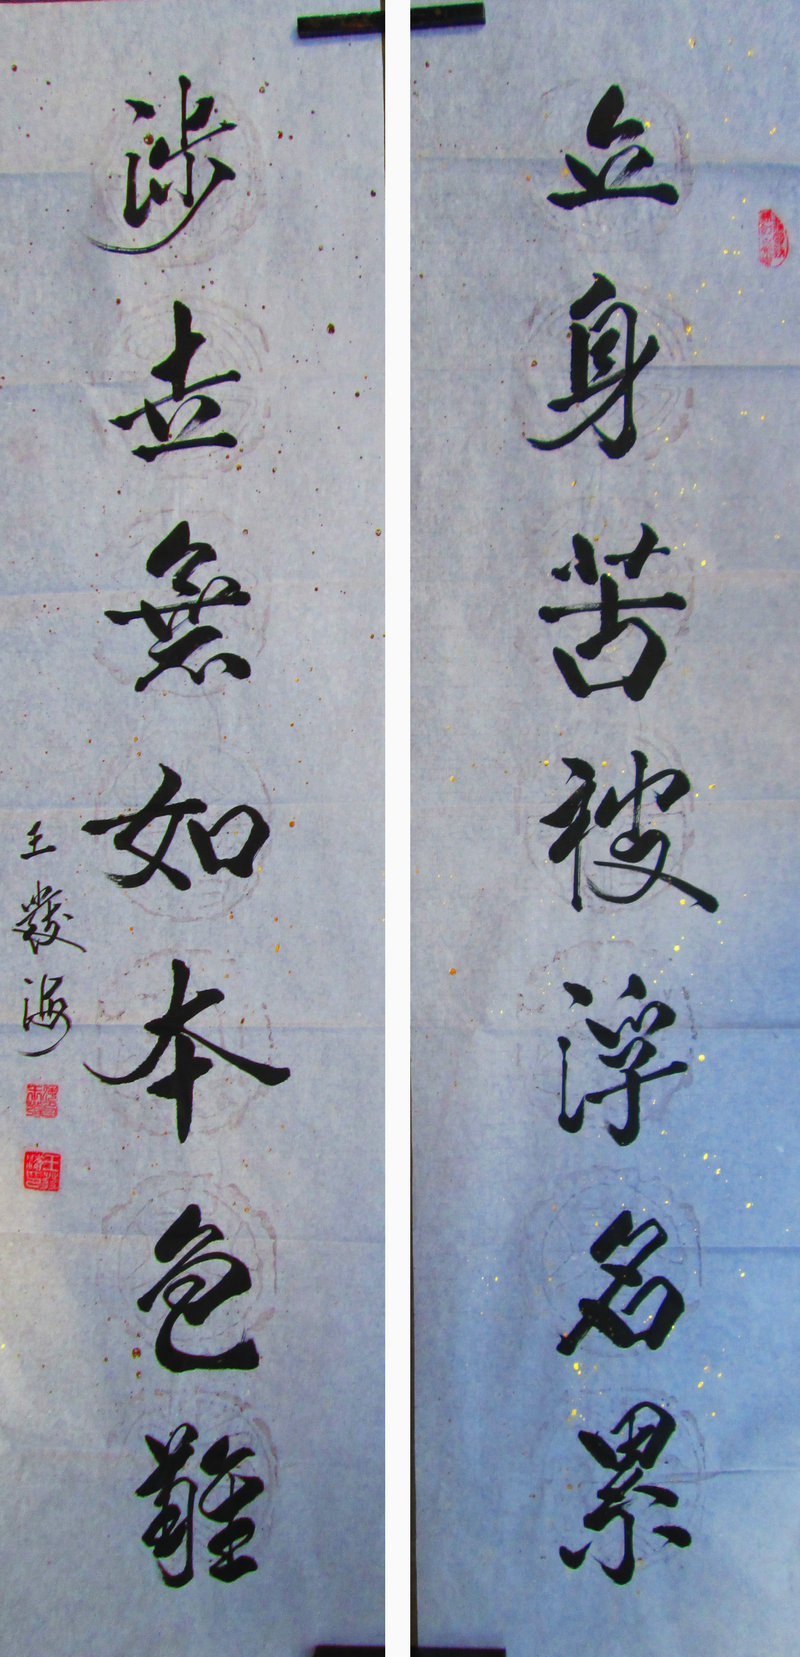 立身苦被浮名累
涉世無如本色難
王發海